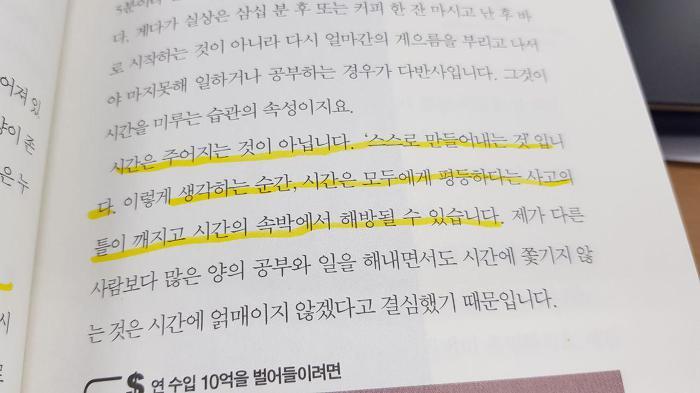 다. 게다가 실상은 삼십 분 후 또는 커피 한 잔 마시고 난 후 바
로 시작하는 것이 아니라 다시 얼마간의 게으름을 부리고 나서
야 마지못해 일하거나 공부하는 경우가 다반사입니다. 그것이
시간을 미루는 습관의 속성이지요.
시간은 주어지는 것이 아닙니다. ‘스스로 만들어내는 것’입니
다. 이렇게 생각하는 순간, 시간은 모두에게 평등하다는 사고의
틀이 깨지고 시간의 속박에서 해방될 수 있습니다. 제가 다른
사람보다 많은 양의 공부와 일을 해내면서도 시간에 쫓기지 않
는 것은 시간에 얽매이지 않겠다고 결심했기 때문입니다.
$ 연 수입 10억을 벌어들이려면